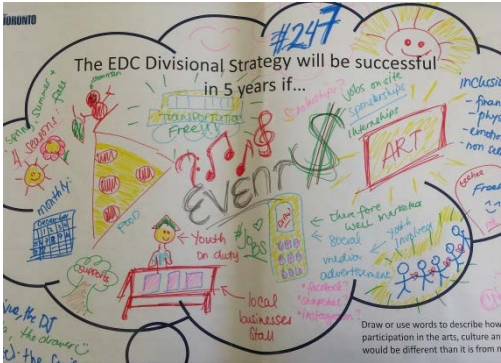 TORONTO
#247
The EDC Divisional Strategy will be successful
in 5 years if...
spring, summer +
fall
4 seasons:
monthly:
transportation
Free!!
scholarships?
jobs on site
sponsorships
internships
ART
inclusion
EVENT
$
FOOD
youth
on duty
#JOBS
therefore
well marketed
social
media
advertisement
*facebook?
*snapchat?
*instagram?
youth
involved
local
businesses
stall
supports
teehee
the DJ
Draw or use words to describe how
participation in the arts, culture an
would be different than it is from n